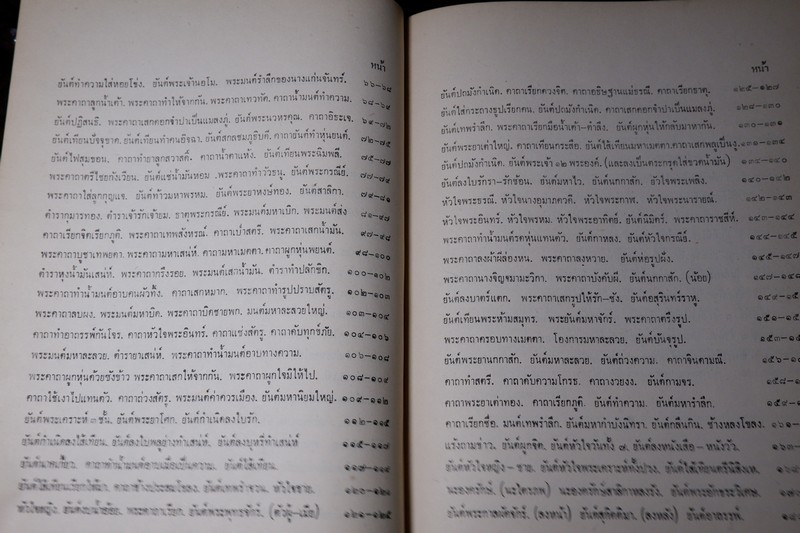 หน้า
ยันต์ทำความใส่หอยโข่ง. ยันต์พระเจ้านอโม. พระมนต์รำลึกของนางแก่นจันทร์. ๖๖-๖๘
พระคาถาลูกน้ำเต้า. พระคาถาทำให้จากกัน. พระคาถาเทวทัต. คาถาน้ำมนต์ทำความ. ๖๘-๖๙
ยันต์ปฏิสนธิ. พระคาถาเสกดอกจำปาเป็นแมลงภู่. ยันต์พระนวหรคุณ. คาถาอิธะเจ. ๖๙-๗๒
ยันต์เทียนปัจจุขาด. ยันต์เทียนทำคนอิจฉา. ยันต์สกลชมภูธิบดี. คาถายันต์ทำหุ่นยนต์. ๗๒-๗๕
ยันต์ไฟสุมขอน. คาถาทำยาลูกสวาสดิ์. คาถาน้ำเต้าแห้ง. ยันต์เทียนพระฉิมพลี. ๗๕-๗๗
พระคาถาตรีไชยกังเวียน. ยันต์แช่น้ำมันหอม. พระคาถาท้าววิรุฬ. ยันต์พระกรณีย์. ๗๗-๗๙
พระคาถาใส่ลูกกุญแจ. ยันต์ท้าวมหาพรหม. ยันต์พระยาหงษ์ทอง. ยันต์สาลิกา. ๗๙-๘๑
ตำรากุมารทอง. ตำราเจ้ารักเจ้ายม. ธาตุพระกรณีย์. พระมนต์มหาเบิก. พระมนต์ส่ง ๘๑-๙๗
คาถาเรียกจิตเรียกภูติ. พระคาถาเทพสังหรณ์. คาถาเป่าสตรี. พระคาถาเสกน้ำมัน. ๙๗-๙๘
พระคาถาบูชาเทพยดา. คาถามหาเสน่ห์. คาถามหาเมตตา. คาถาผูกหุ่นพยนต์. ๙๘-๑๐๐
ตำราหุงน้ำมันเสน่ห์. พระคาถากรึงรอย. พระมนต์เสกน้ำมัน. ตำราทำปลักขิก. ๑๐๐-๑๐๒
พระคาถาทำน้ำมนต์อาบคนผัวทิ้ง. คาถาเสกหมาก. พระคาถาทำรูปปราบสัตรู. ๑๐๒-๑๐๓
พระคาถาลบผง. พระมนต์มหาบิด. พระคาถาบิดชายพก. มนต์มหาละลวยใหญ่. ๑๐๓-๑๐๔
คาถาทำยาถรรพ์กันโจร. คาถาหัวใจพระอินทร์. คาถาแช่งสัตรู. คาถาดับทุกข์ภัย. ๑๐๔-๑๐๖
พระมนต์มหาละลวย. ตำรายาเสน่ห์. พระคาถาทำน้ำมนต์อาบทางความ. ๑๐๖-๑๐๘
พระคาถาผูกหุ่นด้วยชังข้าว พระคาถาเสกให้จากกัน. พระคาถาผูกใจมิให้ไป. ๑๐๘-๑๐๙
คาถาใช้เงาไปแทนตัว. คาถาถ่วงสัตรู. พระมนต์ค่าควรเมือง. ยันต์มหานิยมใหญ่. ๑๐๙-๑๑๒
ยันต์พระเคราะห์ ๓ ชั้น. ยันต์พระยาโศก. ยันต์กำเนิดลงใบรัก. ๑๑๒-๑๑๕
ยันต์กำเนิดลงไส้เทียน. ยันต์ลงใบพลูอ่างทำเสน่ห์. ยันต์ลงบุหรี่ทำเสน่ห์ ๑๑๕-๑๑๗
คาถาทำน้ำมนต์อาบเมื่อเป็นความ. ยันต์ไส้เทียน.
ยันต์ไส้เทียนเรียกให้มา. ยันต์เทพรำจวน. หัวใจชาย. ๑๒๐-๑๒๑
หัวใจหญิง. พระคาถาเรียก. ยันต์พระพุทธจักร์. (ตัวผู้-เมีย) ๑๒๑-๑๒๕
หน้า
ยันต์ปถมังกำเนิด. คาถาเรียกดวงจิต. คาถาอธิษฐานแม่ธรณี. คาถาเรียกธาตุ. ๑๒๕-๑๒๗
ยันต์ใส่กระถางธูปเรียกคน. ยันต์ปถมังกำเนิด. คาถาเสกดอกจำปาเป็นแมลงภู่. ๑๒๘-๑๓๐
ยันต์เทพรำลึก. พระคาถาเรียกมือน้ำเต้า-ตำลึง. ยันต์ผูกหุ่นให้กลับมาหากัน. ๑๓๐-๑๓๑
ยันต์พระยาเต่าใหญ่. คาถาเทียนกระสือ. ยันต์ไส้เทียนมหาเมตตา.คาถาเสกพลูเป็นงู. ๑๓๑-๑๓๔
ยันต์ปถมังกำเนิด. ยันต์พระเจ้า ๑๒ พระองค์. (และลงเป็นตะกรุดใส่ขวดน้ำมัน) ๑๓๔-๑๔๐
ยันต์ลงใบรักรา-รักซ้อน. ยันต์มหาไว. ยันต์นกกาสัก. หัวใจพระเพลิง. ๑๔๐-๑๔๒
หัวใจพระธรณี. หัวใจนางอุมาภควดี. หัวใจพระกาฬ. หัวใจพระนารายณ์. ๑๔๒-๑๔๓
หัวใจพระอินทร์. หัวใจพรหม. หัวใจพระอาทิตย์. ยันต์นิมิตร์. พระคาถาราชสีห์. ๑๔๓-๑๔๔
พระคาถาทำน้ำมนต์รดหุ่นแทนตัว. ยันต์กาหลง. ยันต์หัวใจกรณีย์. ๑๔๔-๑๔๕
พระคาถาลงผ้าผีล่องหน. พระคาถาลุงหวาย. ยันต์ห่อรูปฝัง. ๑๔๕-๑๔๗
พระคาถานางจิญจมาณะวิกา. พระคาถาบังคับผี. ยันต์นกกาสัก. (น้อย) ๑๔๗-๑๔๘
ยันต์ลงบาตร์แตก. พระคาถาเสกรูปให้รัก-ชัง. ยันต์อสุรินทร์ราหู. ๑๔๙-๑๕
ยันต์เทียนพระห้ามสมุทร. พระยันต์มหาจักร์. พระคาถาตรึงรูป. ๑๕๑-๑๕
พระคาถาครอบทางเมตตา. โองการมหาละลวย. ยันต์บันจุรูป. ๑๕๓-๑๕
ยันต์พระยานกกาสัก. ยันต์มหาละลวย. ยันต์ถ่วงความ. คาถาจินดามณี. ๑๕๖-๑
คาถาทำสตรี. คาถาดับความโกรธ. คาถางวยงง. ยันต์กามจร. ๑๕๘-
คาถาพระยาเต่าทอง. คาถาเรียกภูติ. ยันต์ทำความ. ยันต์มหารำลึก.
คาถาเรียกชื่อ. มนต์เทพรำลึก. ยันต์มหากำบังนิทรา. ยันต์กลืนกิน. ช้างหลงโขลง. ๑๖๑
แร้งถามข่าว. ยันต์ผูกจิต. ยันต์หัวใจวันทั้ง ๗. ยันต์ลงหนังเสือ-หนังวัว.
ยันต์หัวใจหญิง-ชาย. ยันต์หัวใจพระเคราะห์ทั้งปวง. ยันต์ไส้เทียนตรีนิสิงเห.
นะองครักษ์. (นะไตรภพ) นะองครักษ์สาลิกาหลงรัง. ยันต์พระยักขะวิเศษ.
ยันต์พระกาสณัตจักร์. (ลงหน้า) ยันต์สุกิตติมา. (ลงหลัง) ยันต์อาถรรพ์.